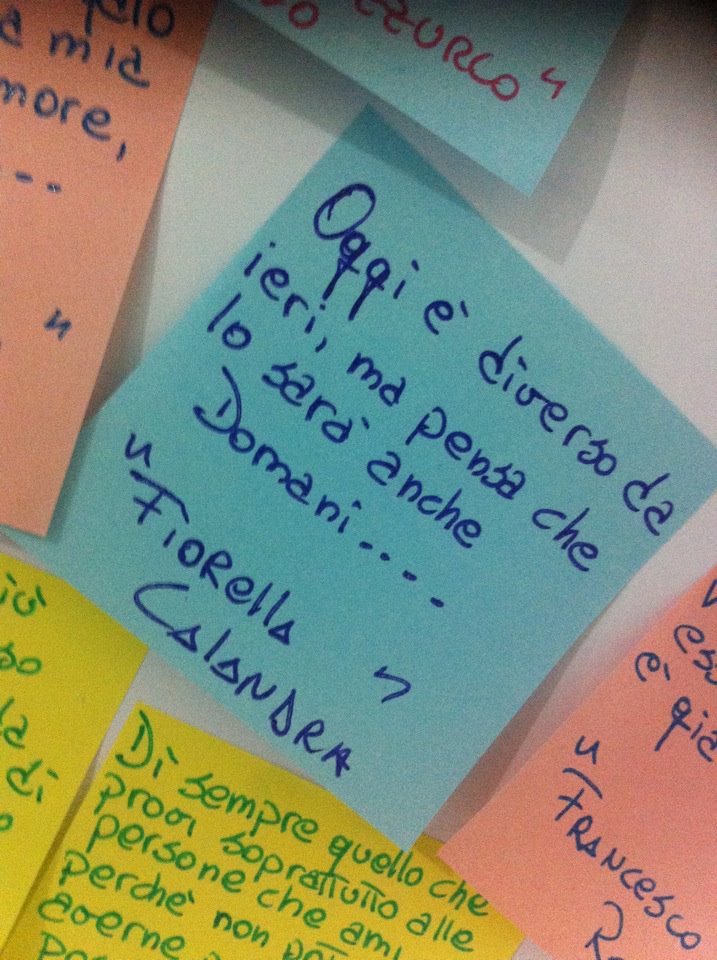 mia
more,
...
"
ZZURCO"
Oggi è diverso da
ieri, ma pensa che
lo sarà anche
Domani....
"Fiorella
Calandra"
iù
so
la
di
Di sempre quello che
provi soprattutto alle
persone che ami
perchè non
averne
è già
"Francesco